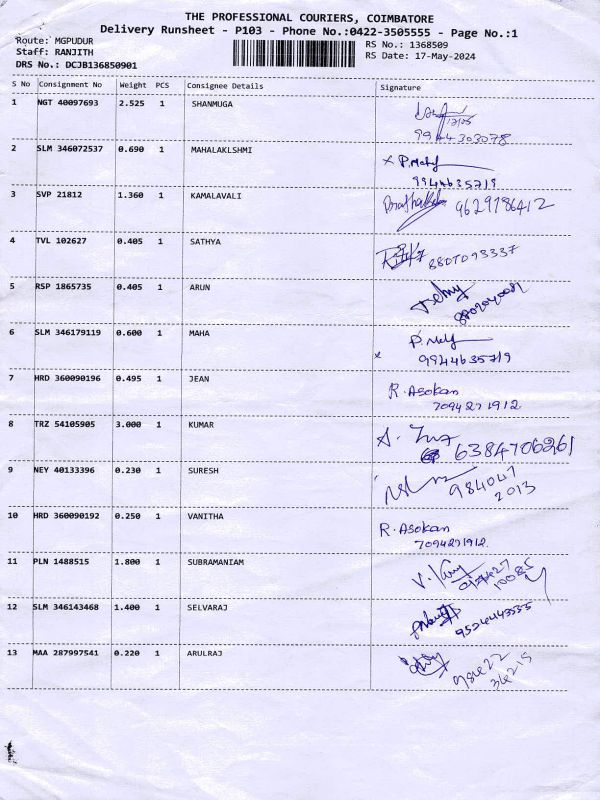 THE PROFESSIONAL COURIERS, COIMBATORE
Delivery Runsheet - P103 - Phone No.:0422-3505555 - Page No.:1
Route: MGPUDUR
RS No.: 1368509
Staff: RANJITH
RS Date: 17-May-2024
DRS No.: DCJB136850901
S No Consignment No Weight PCS Consignee Details Signature
1 NGT 40097693 2.525 1 SHANMUGA
17/05
9944303078
2 SLM 346072537 0.690 1 MAHALAKLSHMI
x P.Mahf
9944635719
3 SVP 21812 1.360 1 KAMALAVALI 9629786412
4 TVL 102627 0.405 1 SATHYA 8807093337
5 RSP 1865735 0.405 1 ARUN
6 SLM 346179119 0.600 1 MAHA
x 9944635719
7 HRD 360090196 0.495 1 JEAN R. Asokan
7094271912
8 TRZ 54105905 3.000 1 KUMAR
6384706261
9 NEY 40133396 0.230 1 SURESH 984047
2013
10 HRD 360090192 0.250 1 VANITHA R. Asokan
7094271912
11 PLN 1488515 1.800 1 SUBRAMANIAM
10085
12 SLM 346143468 1.400 1 SELVARAJ
9524443535
13 MAA 287997541 0.220 1 ARULRAJ